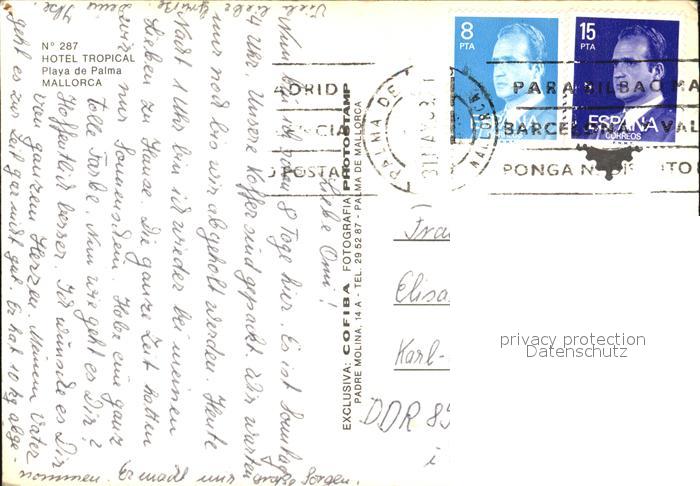 Nº 287
HOTEL TROPICAL
Playa de Palma
MALLORCA
Liebe Omi!
Nun bin ich schon 8 Tage hier. Es ist Sonntag
14 Uhr. Unsere Koffer sind gepackt. Wir warten
nur noch bis wir abgeholt werden. Heute
Nacht 1 Uhr bin ich wieder bei meinen
Lieben zu Hause. Die ganze Zeit hatten
wir nur Sonnenschein. Habe eine ganz
tolle Farbe. Nun wie geht es Dir?
Hoffentlich besser. Ich wünsche es Dir
von ganzem Herzen. Meinem Vater
geht es zur Zeit gar nicht gut. Er hat 10 kg abge-
nommen. Er macht uns große Sorgen.
Viele liebe Grüße
EXCLUSIVA: COFIBA FOTOGRAFIA PHOTOSTAMP
PADRE MOLINA, 14 A - TEL. 29 52 87 - PALMA DE MALLORCA
8
PTA
ESPAÑA
15
PTA
ESPAÑA
CORREOS
F.N.M.T.
PALMA DE
MALLORCA
PARA BILBAO MA
BARCELONA VAL
PONGA
Elisa
Karl-
DDR
i
privacy protection
Datenschutz